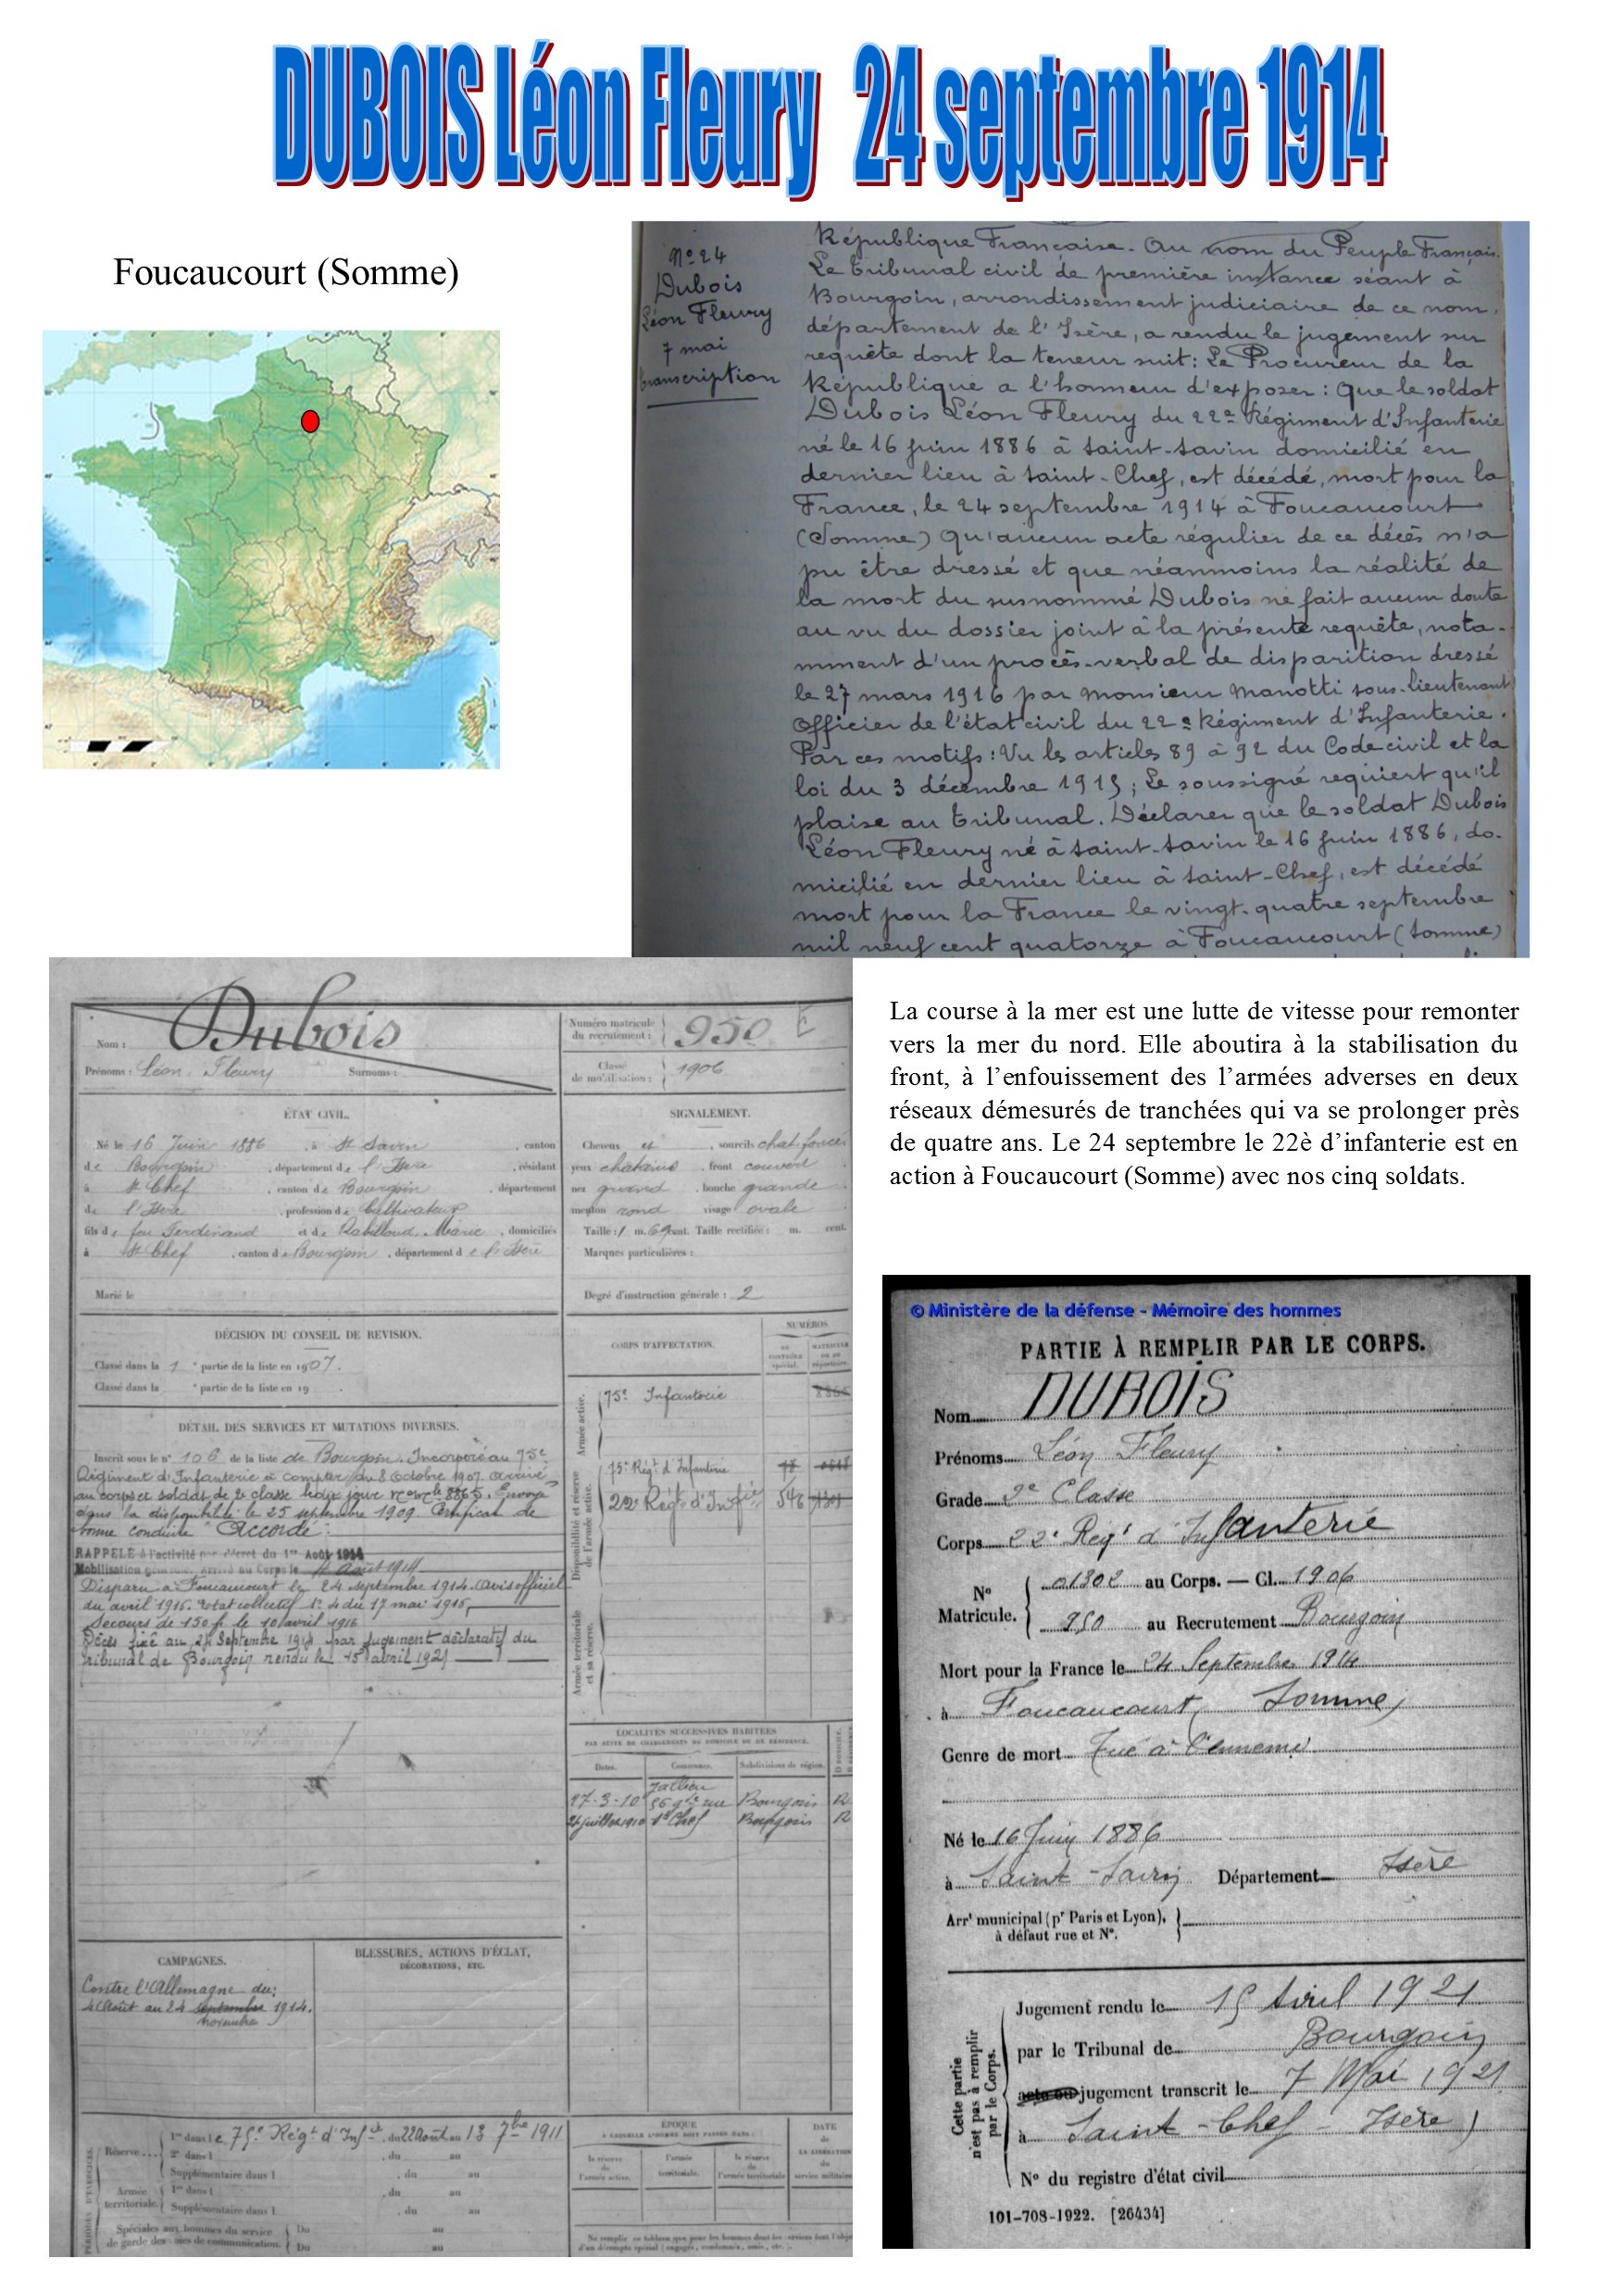 DUBOIS Léon Fleury 24 septembre 1914
Foucaucourt (Somme)
N° 24
Dubois
Léon Fleury
7 mai
transcription
République Française. Au nom du Peuple Français.
Le tribunal civil de première instance séant à
Bourgoin, arrondissement judiciaire de ce nom,
département de l'Isère, a rendu le jugement sur
requête dont la teneur suit: Le Procureur de la
République a l'honneur d'exposer: Que le soldat
Dubois Léon Fleury du 22e Régiment d'Infanterie
né le 16 juin 1886 à Saint-Savin domicilié en
dernier lieu à Saint-Chef, est décédé, mort pour la
France, le 24 septembre 1914 à Foucaucourt
(Somme) Qu'aucun acte régulier de ce décès n'a
pu être dressé et que néanmoins la réalité de
la mort du susnommé Dubois ne fait aucun doute
au vu du dossier joint à la présente requête, nota-
mment d'un procès-verbal de disparition dressé
le 27 mars 1916 par Monsieur Manotti sous-lieutenant
Officier de l'état civil du 22e Régiment d'Infanterie.
Par ces motifs: Vu les articles 89 à 92 du Code civil et la
loi du 3 décembre 1915; Le soussigné requiert qu'il
plaise au tribunal. Déclarer que le soldat Dubois
Léon Fleury né à Saint-Savin le 16 juin 1886, do-
micilié en dernier lieu à Saint-Chef, est décédé
mort pour la France le vingt-quatre septembre
mil neuf cent quatorze à Foucaucourt (Somme)
Nom: Dubois
Prénoms: Léon Fleury Surnoms:
Numéro matricule du recrutement: 950
Classe de mobilisation: 1906
ÉTAT CIVIL.
Né le 16 Juin 1886, à St Savin, canton
de Bourgoin, département de l'Isère, résidant
à St Chef, canton de Bourgoin, département
de l'Isère, profession de Cultivateur
fils de feu Ferdinand et de Rabilloud, Marie, domiciliés
à St Chef, canton de Bourgoin, département de l'Isère
Marié le
SIGNALEMENT.
Cheveux et sourcils chat. foncé
yeux chatains, front couvert
nez grand, bouche grande
menton rond visage ovale
Taille: 1 m. 69 cent. Taille rectifiée: m. cent.
Marques particulières:
Degré d'instruction générale: 2
DÉCISION DU CONSEIL DE REVISION.
Classé dans la 1e partie de la liste en 1907.
Classé dans la e partie de la liste en 19 .
DÉTAIL DES SERVICES ET MUTATIONS DIVERSES.
Inscrit sous le n° 106 de la liste de Bourgoin. Incorporé au 75e
Régiment d'Infanterie à compter du 8 Octobre 1907. arrivé
au corps et soldat de 2e classe ledit jour 8865. Envoyé
dans la disponibilité le 25 septembre 1909. Certificat de
bonne conduite "Accordé".
RAPPELÉ à l'activité par décret du 1er Août 1914
Mobilisation générale. Arrivé au Corps le 4 Août 1914
Disparu à Foucaucourt le 24 septembre 1914. (avis officiel
du avril 1915. Etat collectif N° 4 du 17 mai 1915,
Secours de 150 f. le 10 avril 1916
Décès fixé au 24 Septembre 1914 par Jugement déclaratif du
tribunal de Bourgoin rendu le 15 avril 1921
CORPS D'AFFECTATION.
NUMÉROS
Armée active.
75e Infanterie
Disponibilité et réserve de l'armée active.
75e Régt d'Infanterie
22e Régt d'Infie 546
Armée territoriale et sa réserve.
LOCALITÉS SUCCESSIVES HABITÉES
PAR SUITE DE CHANGEMENTS DE DOMICILE OU DE RÉSIDENCE.
Dates. Communes. Subdivisions de région.
27-3-10 Jallieu 56 gde rue Bourgoin R
24 juillet 1910 St Chef Bourgoin R
CAMPAGNES.
Contre l'Allemagne du:
4 Août au 24 septembre 1914.
novembre
BLESSURES, ACTIONS D'ÉCLAT,
DÉCORATIONS, ETC.
Réserve 1re dans le 75e Régt d'Infie, du 22 Août au 13 7bre 1911
2e dans l , du au
Supplémentaire dans l , du au
Armée territoriale. 1re dans l , du au
Supplémentaire dans l , du au
Spéciales aux hommes du service de garde des voies de communication. Du au
Du au
ÉPOQUE
À LAQUELLE L'HOMME DOIT PASSER DANS:
la réserve de l'armée active. l'armée territoriale. la réserve de l'armée territoriale
DATE de LA LIBÉRATION du service militaire
La course à la mer est une lutte de vitesse pour remonter
vers la mer du nord. Elle aboutira à la stabilisation du
front, à l’enfouissement des l’armées adverses en deux
réseaux démesurés de tranchées qui va se prolonger près
de quatre ans. Le 24 septembre le 22è d’infanterie est en
action à Foucaucourt (Somme) avec nos cinq soldats.
© Ministère de la défense - Mémoire des hommes
PARTIE À REMPLIR PAR LE CORPS.
Nom DUBOIS
Prénoms Léon Fleury
Grade 2e Classe
Corps 22e Régt d'Infanterie
N° Matricule. 01302 au Corps. — Cl. 1906
950 au Recrutement Bourgoin
Mort pour la France le 24 Septembre 1914
à Foucaucourt (Somme)
Genre de mort Tué à l'ennemi
Né le 16 Juin 1886
à Saint-Savin Département Isère
Arrt municipal (pr Paris et Lyon),
à défaut rue et N°.
Cette partie n'est pas à remplir par le Corps.
Jugement rendu le 15 Avril 1921
par le Tribunal de Bourgoin
acte ou jugement transcrit le 7 Mai 1921
à Saint-Chef - Isère)
N° du registre d'état civil
101-708-1922. [26434]